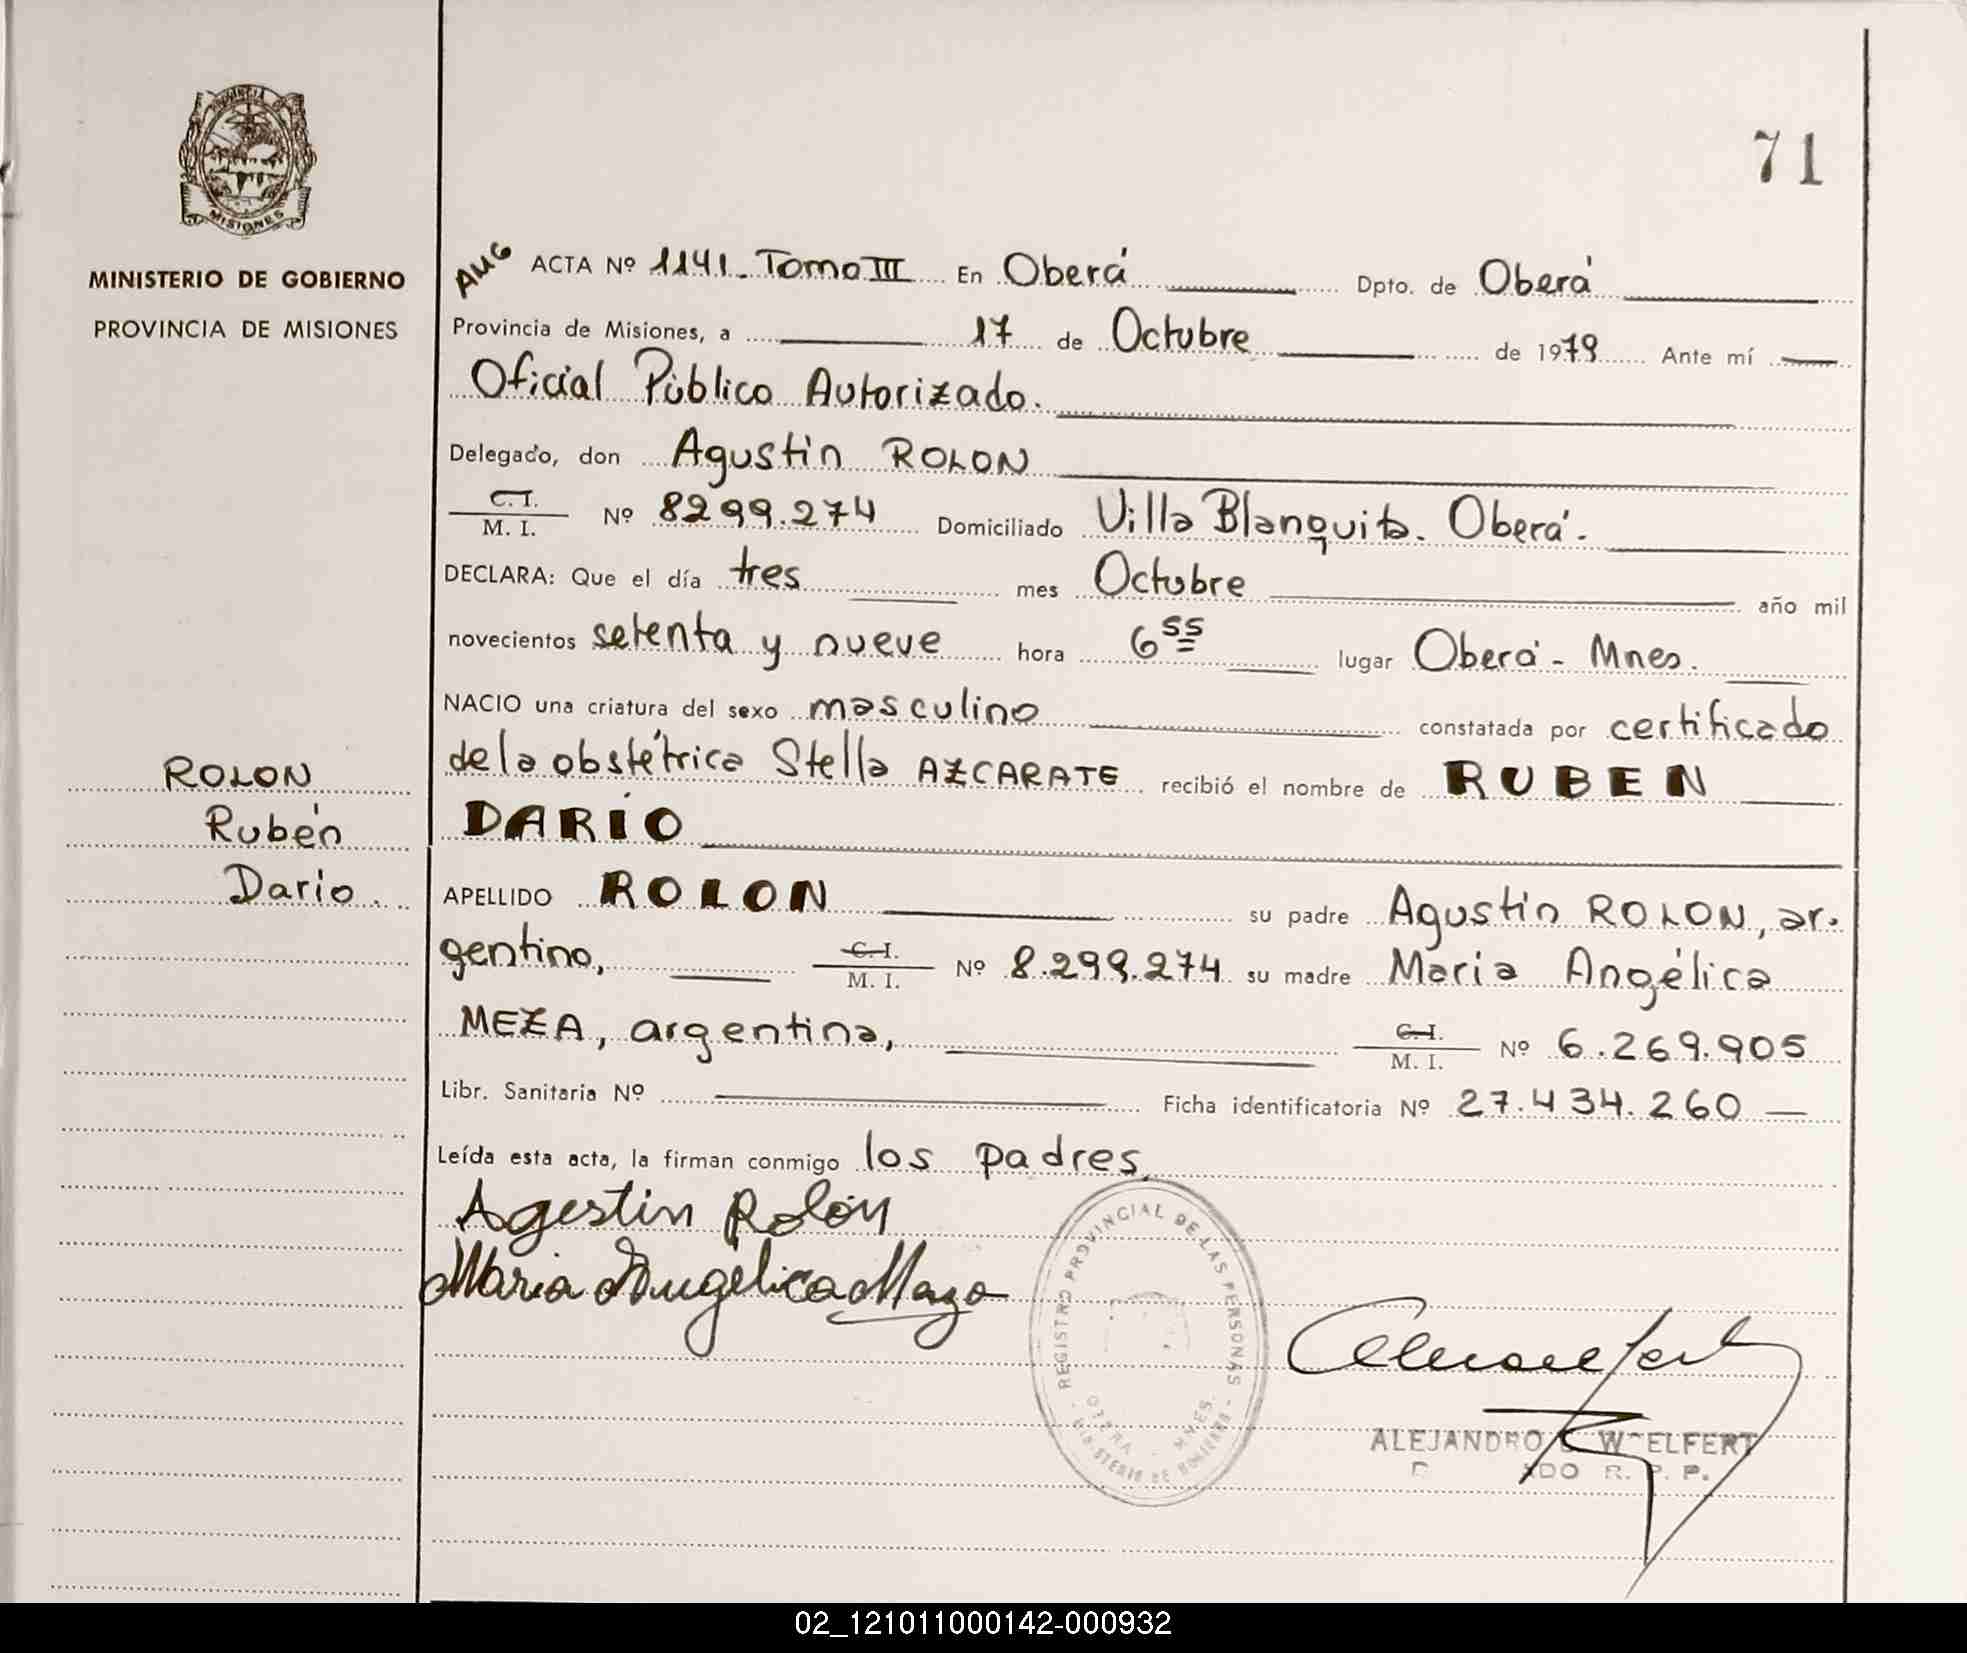 71
PROVINCIA
MISIONES
MINISTERIO DE GOBIERNO
PROVINCIA DE MISIONES
AUG ACTA Nº 1141. Tomo III En Oberá Dpto. de Oberá
Provincia de Misiones, a 17 de Octubre de 1979 Ante mí
Oficial Público Autorizado.
Delegado, don Agustín ROLON
C. I. M. I. Nº 8299.274 Domiciliado Villa Blanquita. Oberá.
DECLARA: Que el día tres mes Octubre año mil
novecientos setenta y nueve hora 6 55 lugar Oberá - Mnes.
NACIO una criatura del sexo masculino constatada por certificado
de la obstétrica Stella AZCARATE recibió el nombre de RUBEN
DARÍO
ROLON
Rubén
Dario.
APELLIDO ROLON su padre Agustín ROLON, ar-
gentino, C. I. M. I. Nº 8.299.274 su madre Maria Angélica
MEZA, argentina, C. I. M. I. Nº 6.269.905
Libr. Sanitaria Nº Ficha identificatoria Nº 27.434.260
Leída esta acta, la firman conmigo los padres
Agestin Rolón
Maria Angélica Maza
REGISTRO PROVINCIAL DE LAS PERSONAS
OBERA - MNES.
MINISTERIO DE GOBIERNO
ALEJANDRO WELFERT
R. P. P.
02_121011000142-000932